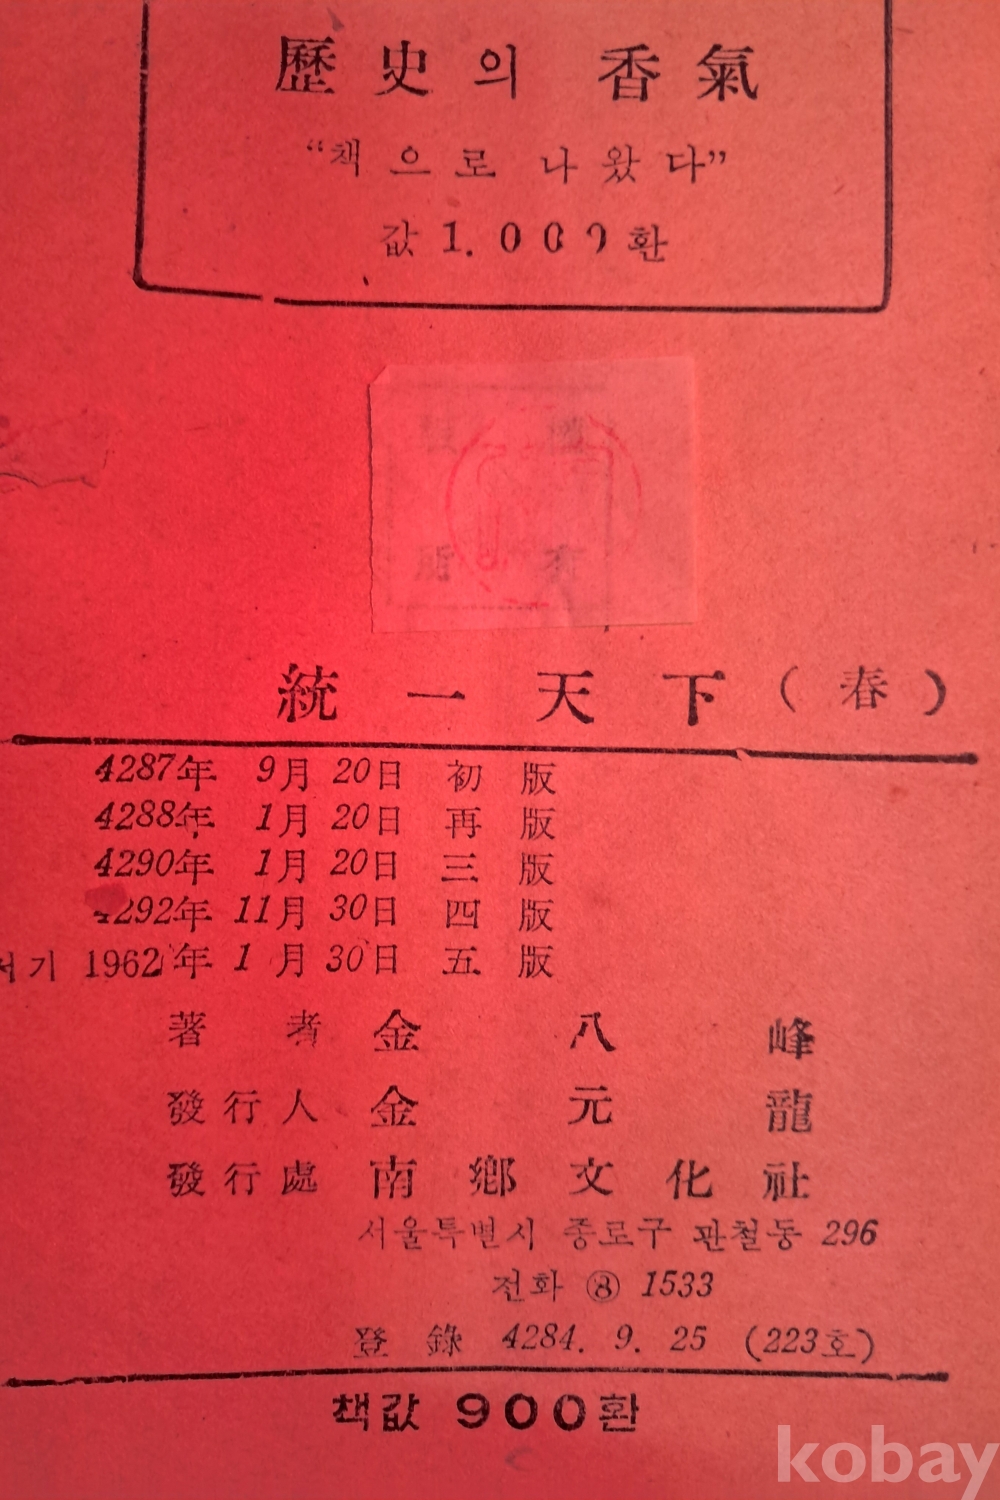 歷史의 香氣
“책으로 나왔다”
값 1.000환
統一天下(春)
4287年 9月 20日 初版
4288年 1月 20日 再版
4290年 1月 20日 三版
4292年 11月 30日 四版
서기 1962年 1月 30日 五版
著者 金八峰
發行人 金元龍
發行處 南鄕文化社
서울특별시 종로구 관철동 296
전화 ⑧ 1533
登錄 4284. 9. 25 (223호)
책값 900환
kobay